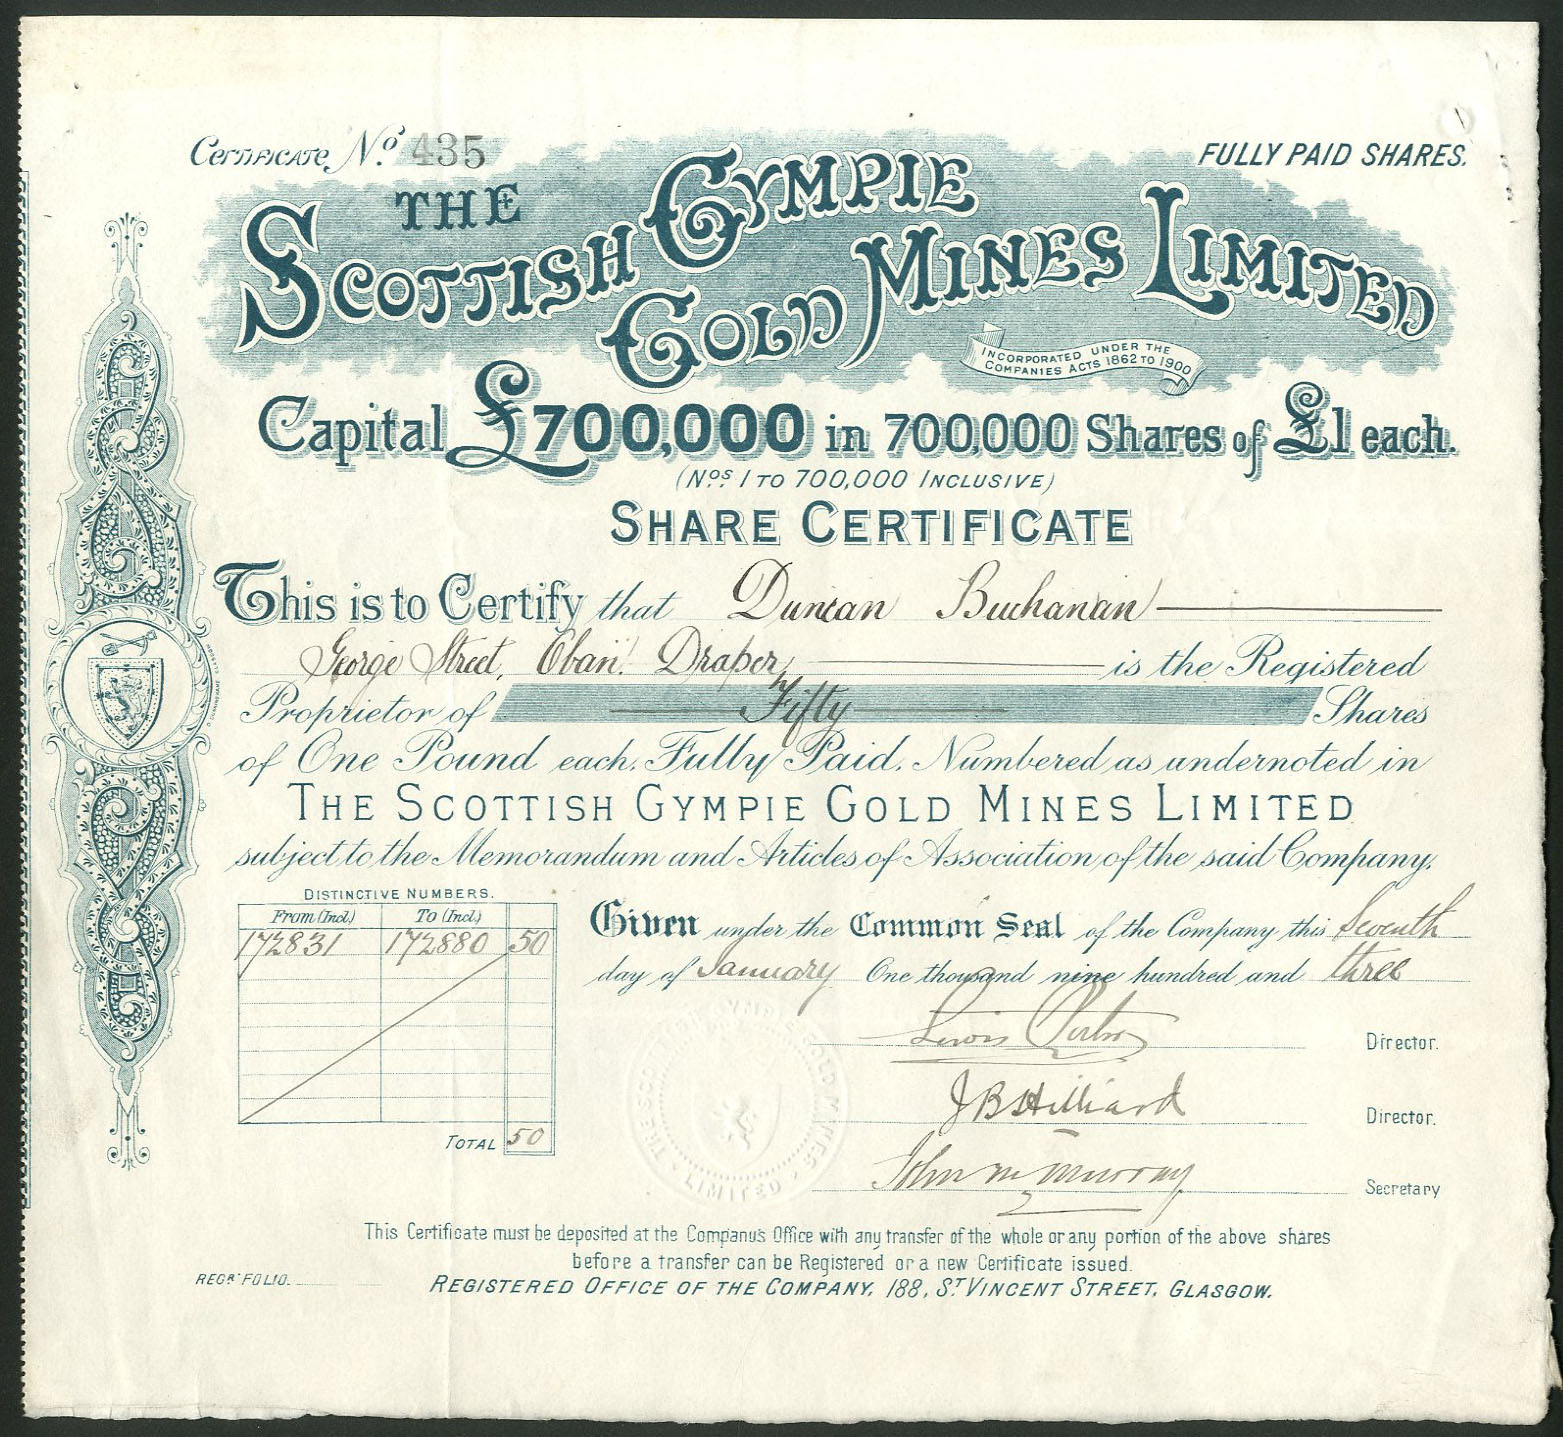 Certificate No. 435
FULLY PAID SHARES.
THE
SCOTTISH GYMPIE
GOLD MINES LIMITED
INCORPORATED UNDER THE
COMPANIES ACTS 1862 TO 1900
Capital £700,000 in 700,000 Shares of £1 each.
(Nos. 1 TO 700,000 INCLUSIVE)
SHARE CERTIFICATE
This is to Certify that Duncan Buchanan
George Street, Oban. Draper, is the Registered
Proprietor of Fifty Shares
of One Pound each, Fully Paid, Numbered as undernoted in
THE SCOTTISH GYMPIE GOLD MINES LIMITED
subject to the Memorandum and Articles of Association of the said Company.
DISTINCTIVE NUMBERS.
From (Incl.) To (Incl.)
172831 172880 50
TOTAL 50
Given under the Common Seal of the Company this Seventh
day of January One thousand nine hundred and three
Director.
J B Hilliard Director.
John M Murray Secretary
THE SCOTTISH GYMPIE GOLD MINES LIMITED
This Certificate must be deposited at the Company's Office with any transfer of the whole or any portion of the above shares
before a transfer can be Registered or a new Certificate issued.
REGR. FOLIO.
REGISTERED OFFICE OF THE COMPANY, 188, ST. VINCENT STREET, GLASGOW.